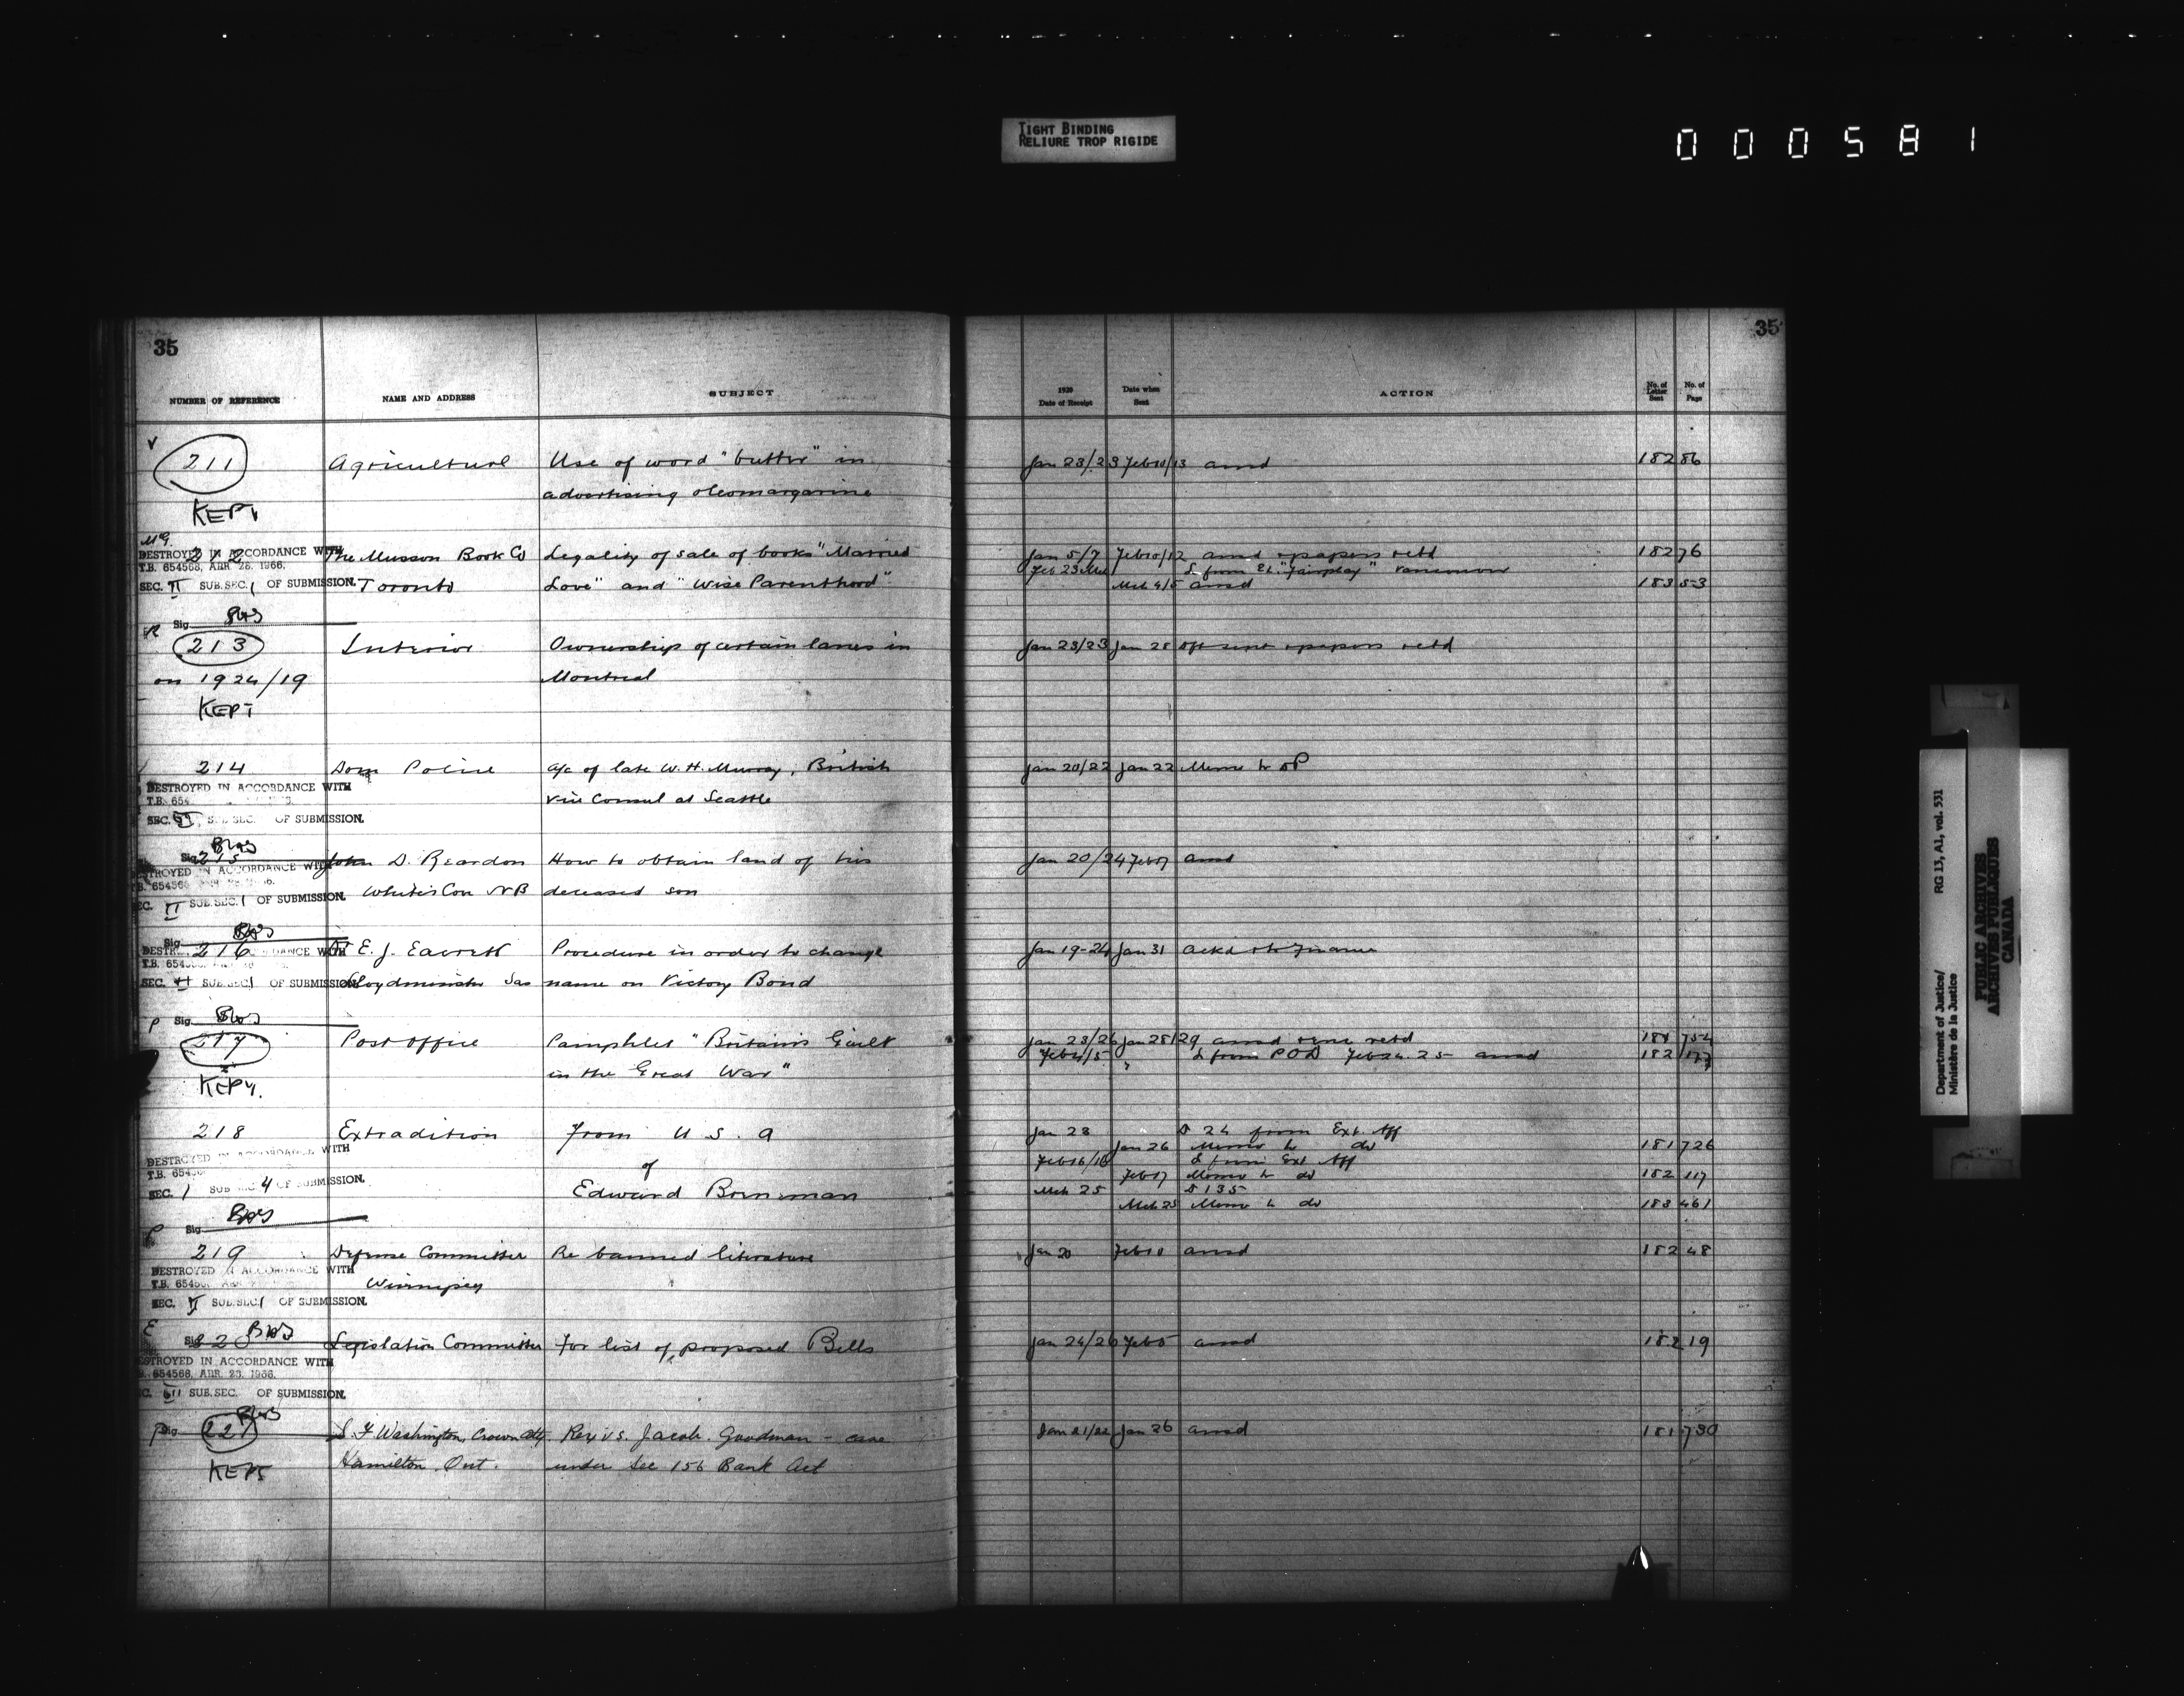 TIGHT BINDING
RELIURE TROP RIGIDE
000581
35
35
NUMBER OF REFERENCE NAME AND ADDRESS SUBJECT 1920 Date of Receipt Date when Sent ACTION No. of Letter Sent No. of Page
211 Agricultural Use of word "butter" in Jan 23/23 Feb 10/13 ansd 182 86
advertising oleomargarine
KEPT
DESTROYED IN ACCORDANCE WITH The Musson Book Co Legality of sale of books "Married Jan 5/7 Feb 10/12 ansd papers retd 182 76
T.B. 654568, APR. 28, 1966.
Feb 23 L from Ed. "Fairplay" Vancouver
SEC. II SUB. SEC. 1 OF SUBMISSION. Toronto Love" and "Wise Parenthood" Mch 4/5 ansd 183 53
Sig.
213 Interior Ownership of certain lanes in Jan 23/23 Jan 28 papers retd
on 1924/19 Montreal
KEPT
214 Dom Police a/c of late W. H. Murray, British Jan 20/22 Jan 22 Memo to
DESTROYED IN ACCORDANCE WITH Vice Consul at Seattle
SEC. SUB. SEC. OF SUBMISSION.
Sig. 215 John D. Reardon How to obtain land of his Jan 20/24 Feb 7 ansd
DESTROYED IN ACCORDANCE WITH
SEC. II SUB. SEC. 1 OF SUBMISSION. White's Cove N B deceased son
Sig.
216 E. J. Procedure in order to change Jan 19-24 Jan 31 Ackd Finance
SEC. SUB. SEC. 1 OF SUBMISSION. Lloydminster Sas name on Victory Bond
Sig.
217 Post Office Pamphlet "Britain's Guilt Jan 23/26 Jan 28/29 ansd retd 181 754
Feb 4/5 L from POD Feb 24. 25 ansd 182 177
in the Great War"
KEPT.
218 Extradition from U. S. A Jan 23 D 24 from Ext. Aff
DESTROYED IN ACCORDANCE WITH of Jan 26 Memo to do 181 726
Feb 16/16 L from Ext Aff
Feb 17 Memo to do 182 117
SEC. 1 SUB. SEC. 4 OF SUBMISSION. Edward Mch 25 D 135
Mch 25 Memo to do 183 461
Sig.
219 Defense Committee Re banned literature Jan 20 Feb 10 ansd 182 48
DESTROYED IN ACCORDANCE WITH
Winnipeg
SEC. II SUB. SEC. 1 OF SUBMISSION.
Sig. 220 Legislation Committee For list of proposed Bills Jan 24/26 Feb 5 ansd 182 19
DESTROYED IN ACCORDANCE WITH
654568, APR. 28, 1966.
SUB. SEC. OF SUBMISSION.
Sig. 221 S. F Washington, Crown Atty. Rex vs. Jacob. Goodman - case Jan 21/22 Jan 26 ansd 181 730
Hamilton. Ont. under Sec 156 Bank Act
KEPT
Department of Justice/ RG 13, A1, vol. 531
Ministère de la Justice
PUBLIC ARCHIVES
ARCHIVES PUBLIQUES
CANADA